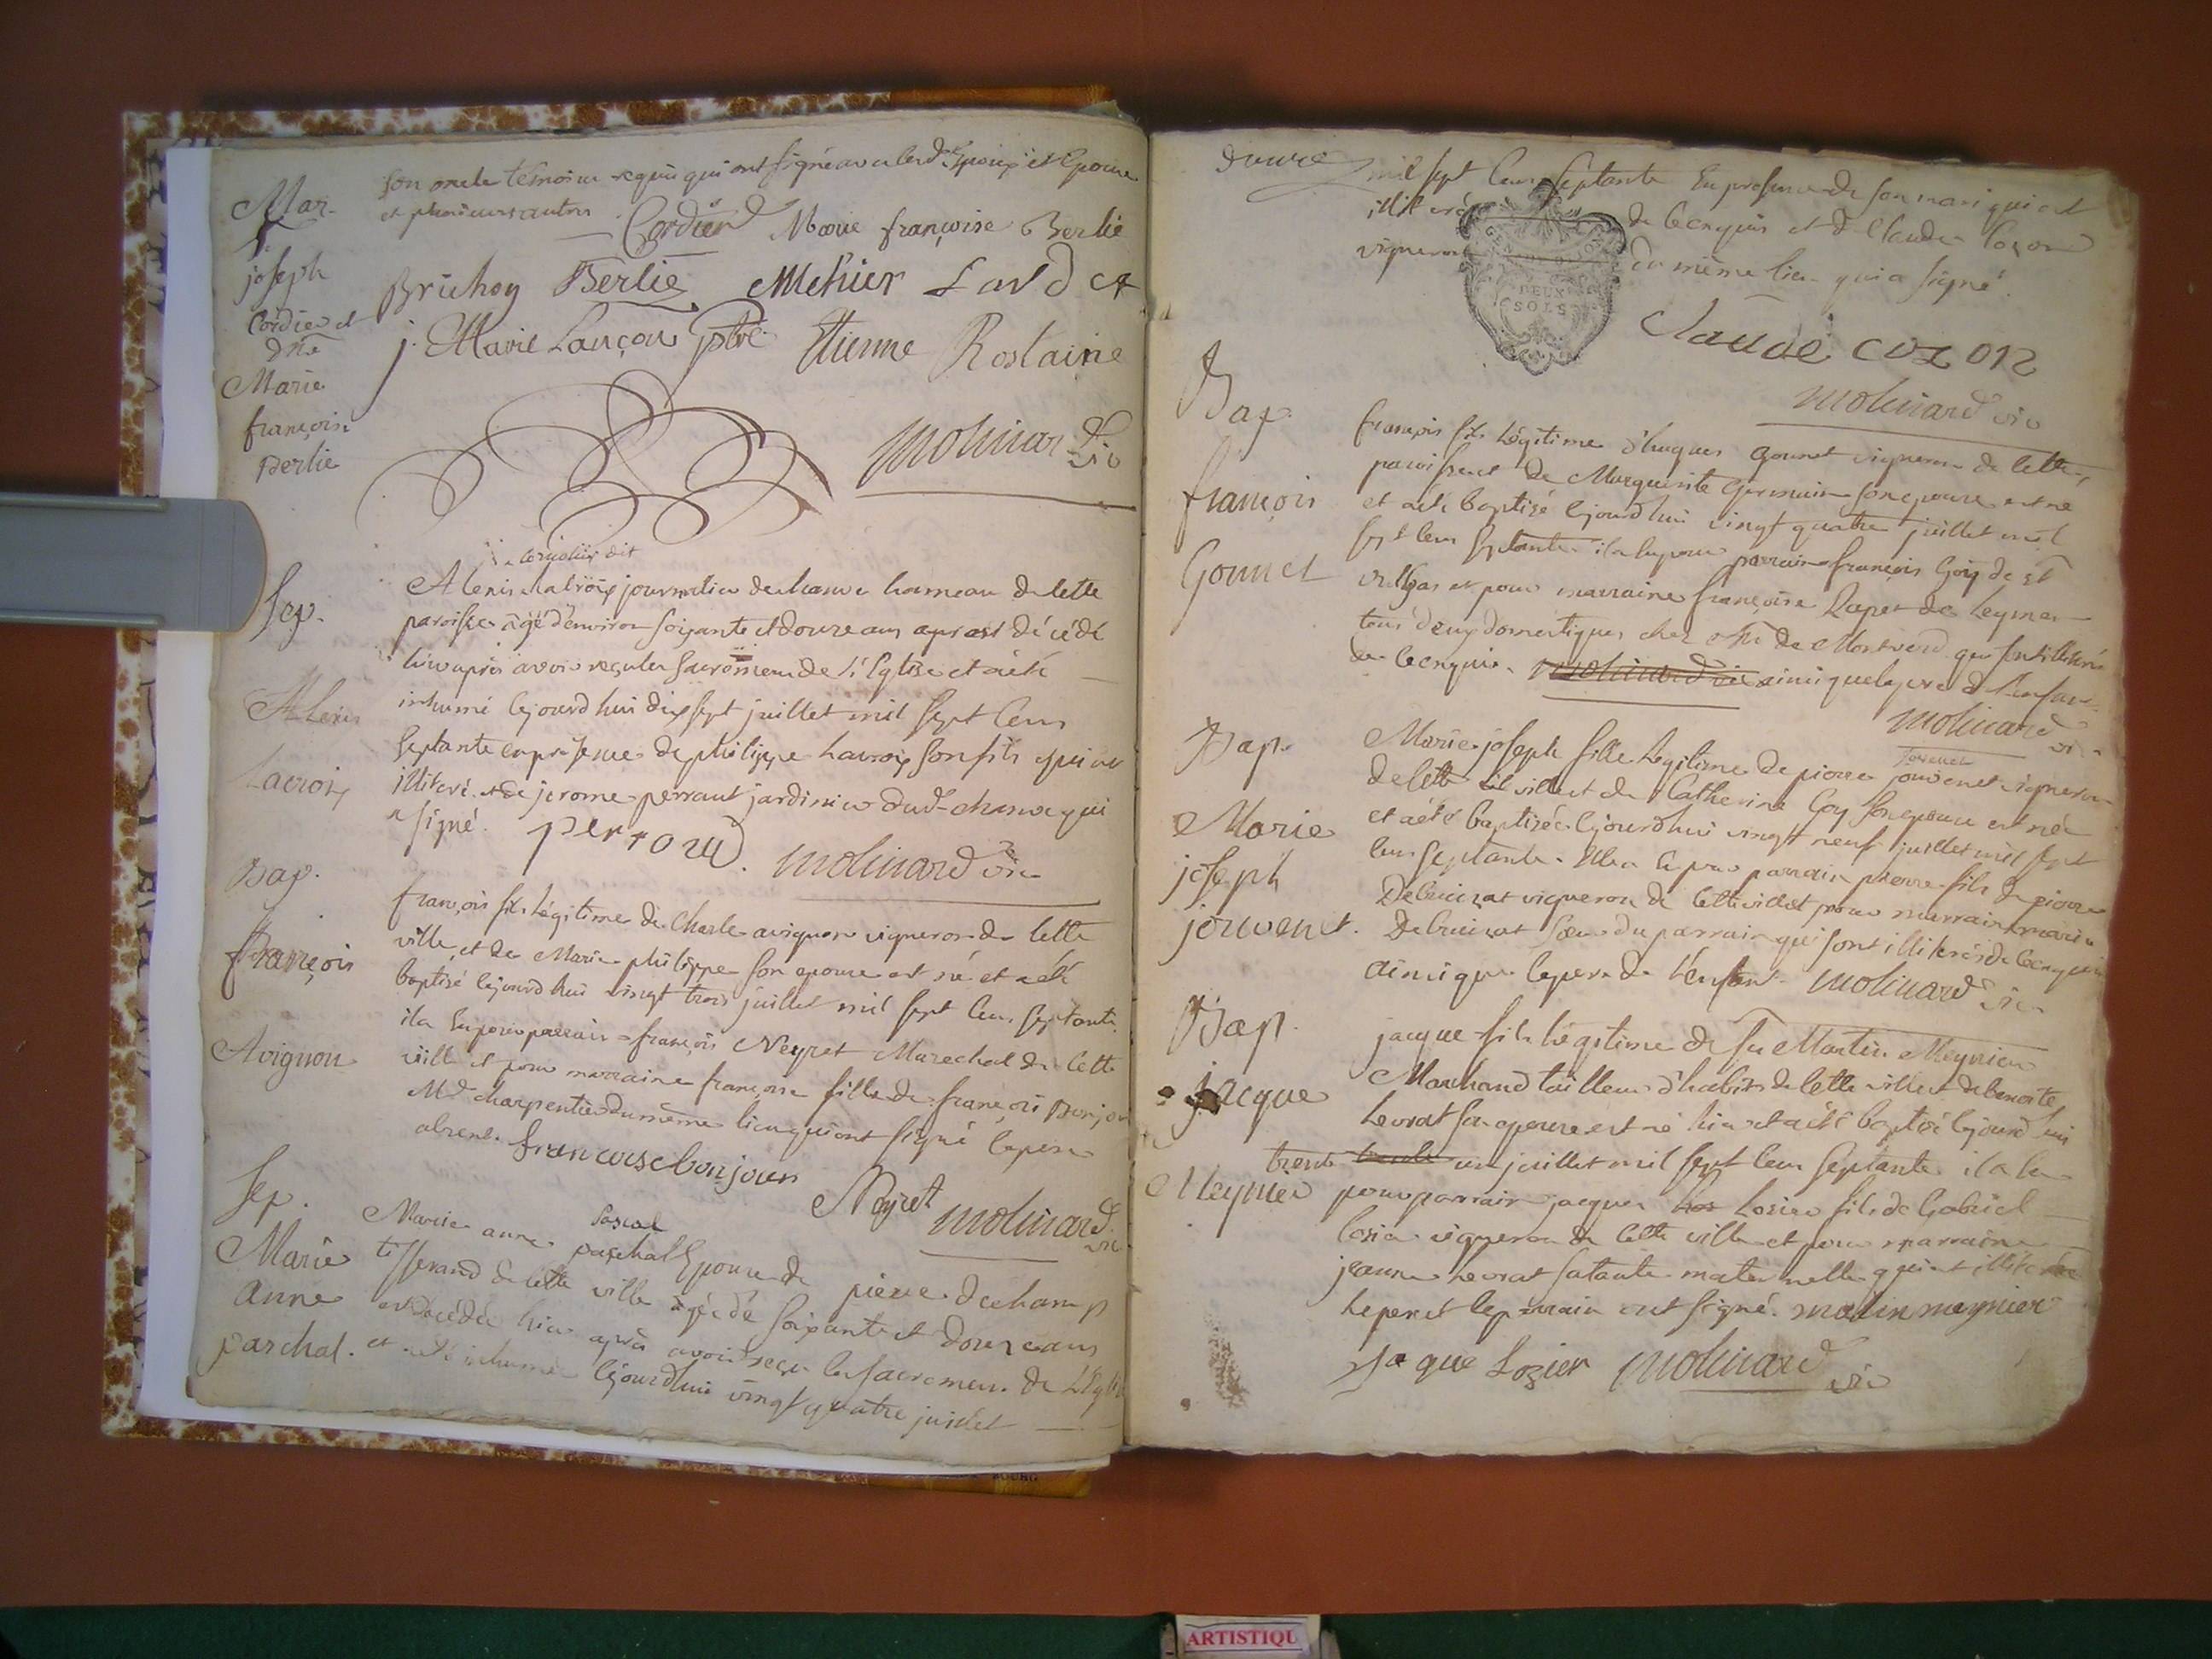 Mar.
joseph
Cordier et
dlle
Marie
françoise
Berlie
son oncle témoins requis qui ont signé avec lesd. Epoux et Epouse
et plusieurs autres
Cordier Marie françoise Berlié
Brichon Berlié Mehier
j. Marie Lançon ptre Etienne Rostaine
Molinard vic
Sep.
Alexis
Lacroix
dit
Alexis Lacroix journalier de hameau de cette
paroisse agé d'environ soixante et douze ans est décédé
hier après avoir reçu les sacremens de l'Eglise et a été
inhumé cejourd'hui dix sept juillet mil sept cens
septante en présence de philippe Lacroix son fils qui est
illiteré et de jerome perraut jardinier dud. qui
a signé. perroud. Molinard vic
Bap.
françois
Avignon
françois fils légitime de Charle avignon vigneron de cette
ville et de Marie philippe son epouse est né et a été
baptisé cejourd'hui vingt trois juillet mil sept cens septante
il a eu pour parrain françois Neyret Marechal de cette
ville et pour marraine françoise fille de françois Bonjour
Md charpentier du même lieu qui ont signé le pere
absent. francoise bonjour
Neyret Molinard vic
Sep.
Marie
anne
paschal.
Pascal
Marie anne paschal Epouse de pierre dechamp
tisserand de cette ville agée de soixante et douze ans
est décédée hier après avoir reçu les sacremens de l'Eglise
et a été inhumée cejourd'hui vingt quatre juillet
mil sept cens septante en presence de son mari qui est
illiteré de ce enquis et de Claude Cozon
vigneron du même lieu qui a signé.
GENERALITE
DEUX
SOLS
Claude cozon
Molinard vic
Bap.
françois
Gonnet
françois fils légitime d'hugues gonnet vigneron de cette
paroisse et de Marguerite Germain son epouse est né
et a été baptisé cejourd'hui vingt quatre juillet mil
sept cens septante il a eu pour parrain françois Goy de St
Vulbas et pour marraine françoise de Leyment
tous deux domestiques chez Mr de Montverd qui sont illiterés
de ce enquis Molinard vic ainsi que le pere de l'enfant.
Molinard vic
Bap.
Marie
joseph
jouvenet.
Jouvenet
Marie joseph fille legitime de pierre jouvenet vigneron
de cette ville et de Catherine Goy son epouse est née
et a été baptisée cejourd'hui vingt neuf juillet mil sept
cens septante. Elle a eu pour parrain pierre fils de pierre
vigneron de cette ville et pour marraine marie
soeur du parrain qui sont illiterés de ce enquis
ainsi que le pere de l'enfant. Molinard vic
Bap.
jacque
Meynier
jacque fils légitime de sr Martin Meynier
Marchand tailleur d'habits de cette ville et de benoite
Levrat son epouse est né hier et a été baptisé cejourd'hui
trente trente un juillet mil sept cens septante. il a eu
pour parrain jacques Losier fils de Gabriel
Losier vigneron de cette ville et pour marraine
jeanne Levrat sa tante maternelle qui est illiterée
le pere et le parrain ont signé. matin meynier
Jaque Lozier Molinard vic
ARTISTIQU